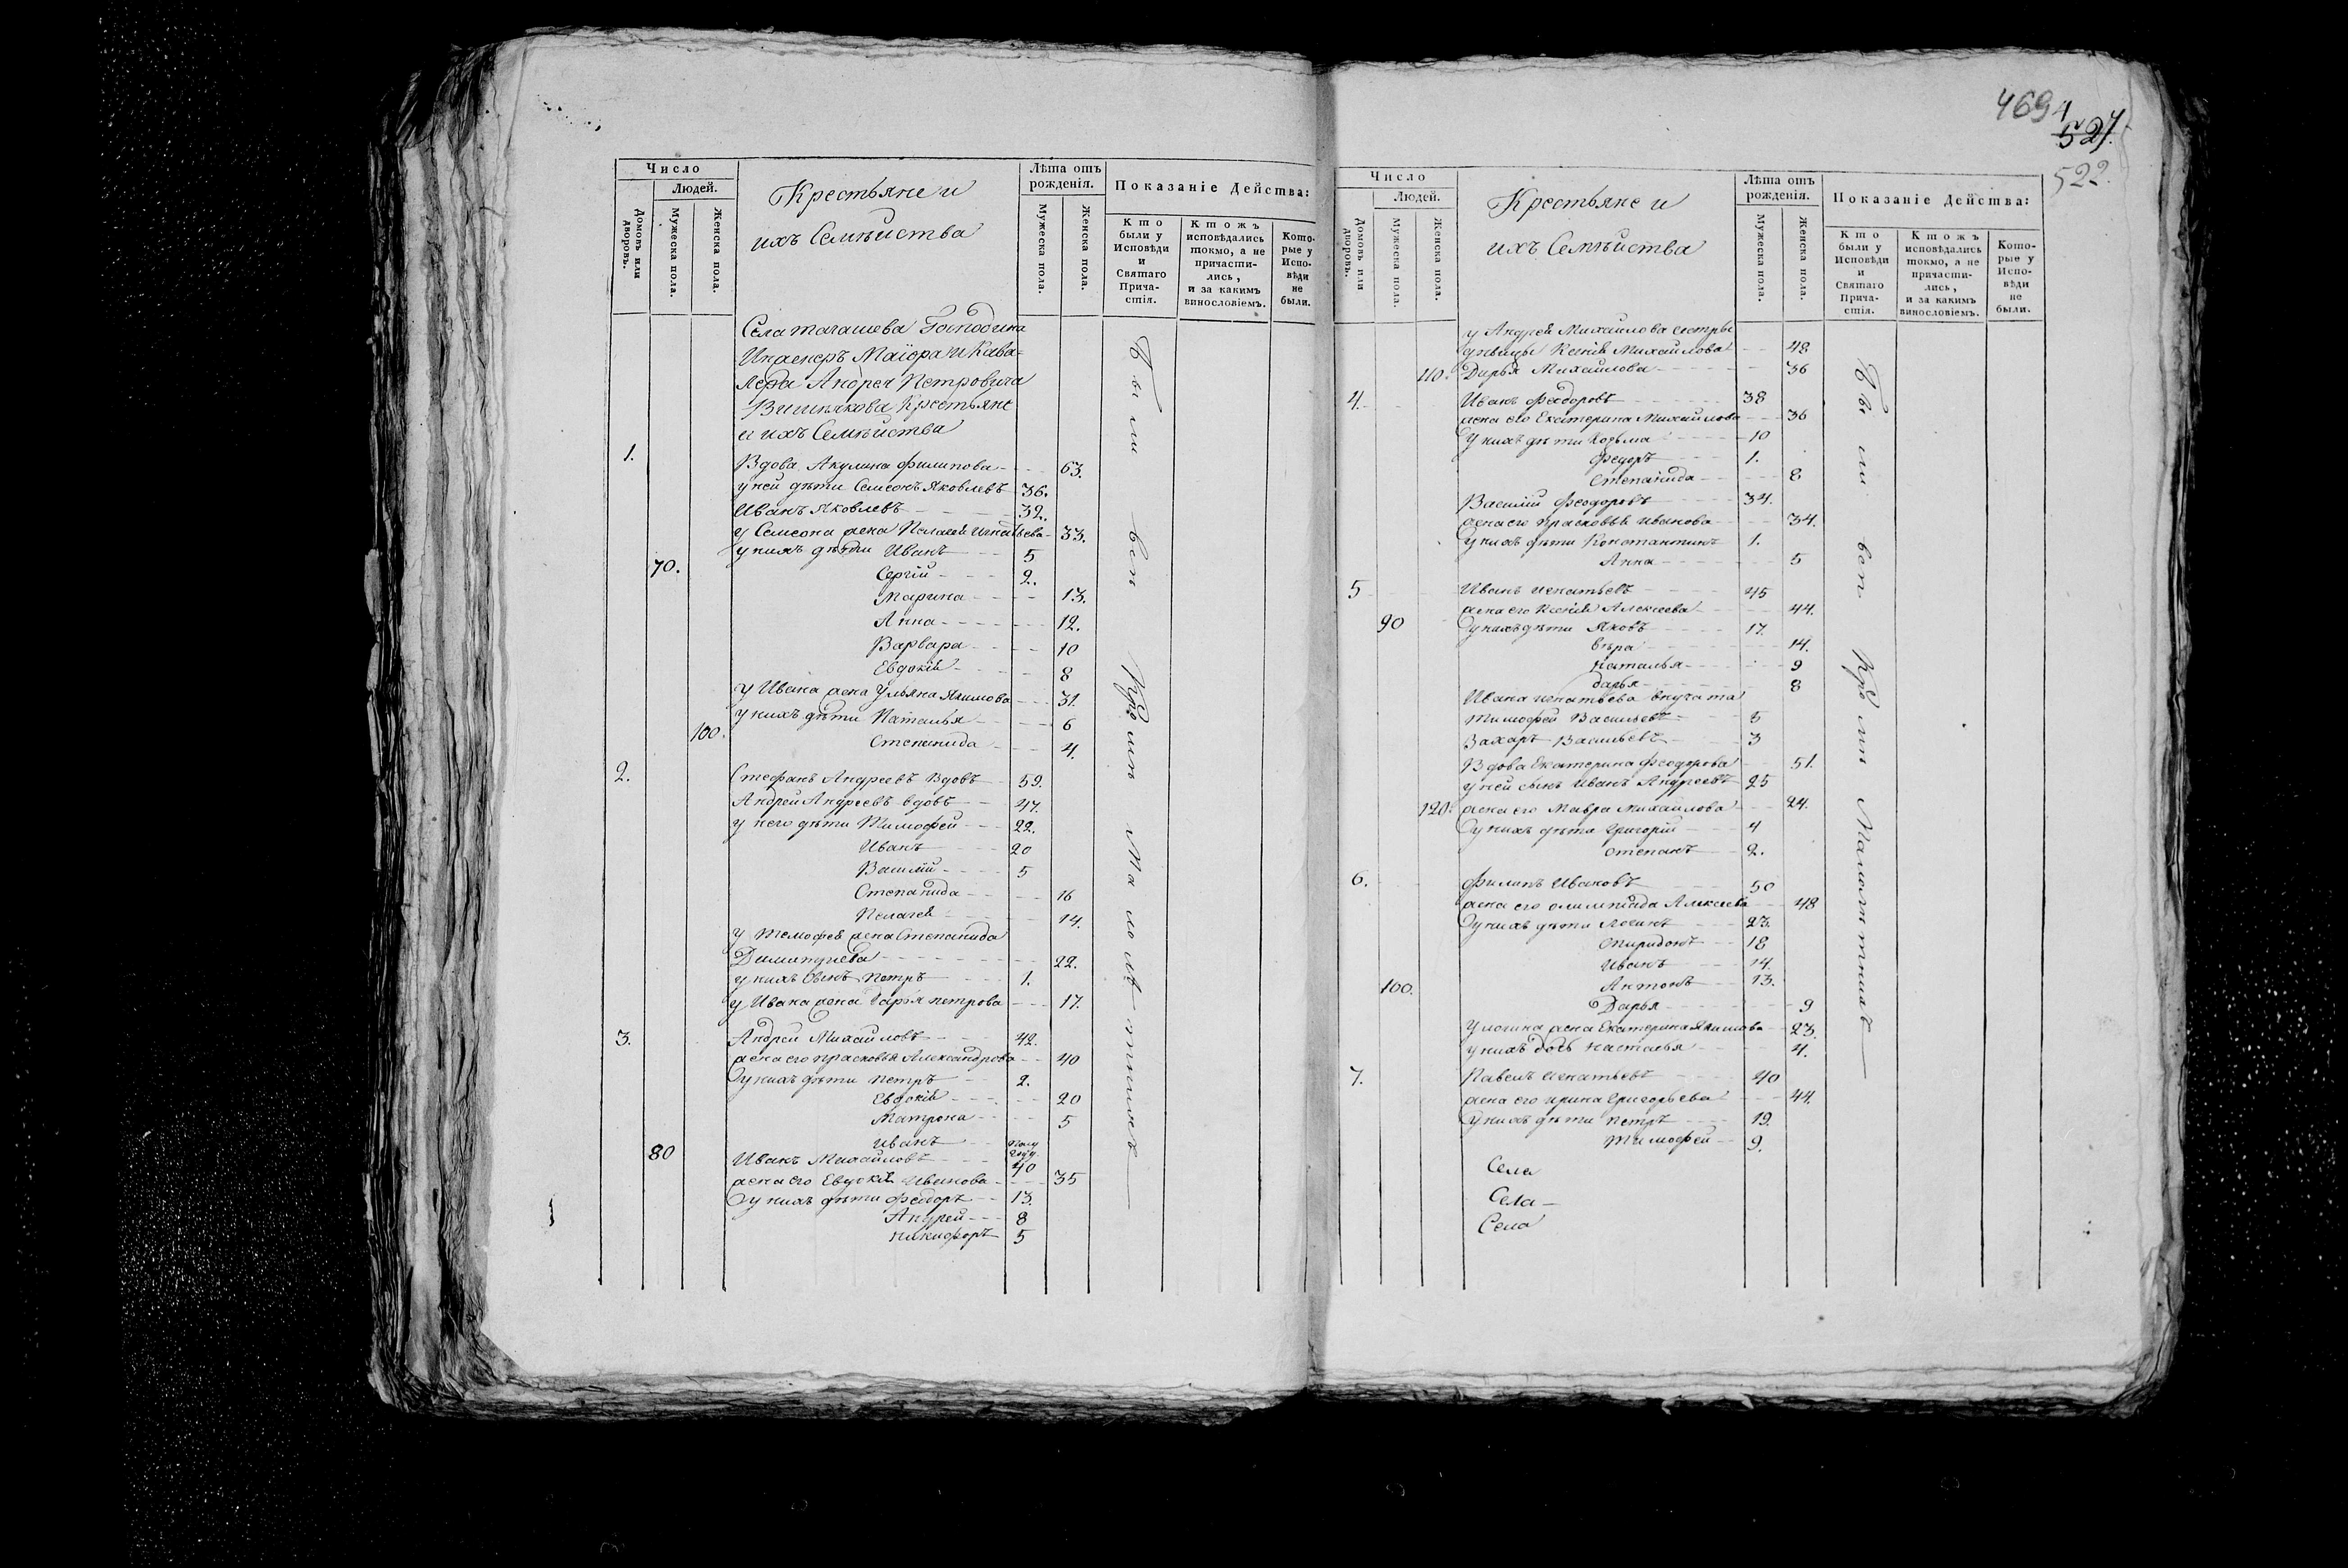 Число
Людей.
Домовъ или дворовъ.
Мужеска пола.
Женска пола.
Крестьяне и
ихъ Семѣйства
Лѣта отъ рожденія.
Мужеска пола.
Женска пола.
Показаніе Дѣйства:
Кто были у Исповѣди и Святаго Причастія.
Ктожъ исповѣдались токмо, а не причастились, и за какимъ винословіемъ.
Которые у Исповѣди не были.
Села Господина
Инженеръ Маіора и Кава-
лера Андрея Петровича
Вишнякова Крестьяне
и ихъ Семѣйства
1. Вдова Акулина Филипова 63.
у ней дѣти Семеонъ Яковлевъ 36.
Иванъ Яковлевъ 32.
у Семеона жена Пелагея Игнатьева 33.
у нихъ дѣти Иванъ 5
70. Сергій 2.
Марина 13.
Анна 12.
Варвара 10
Евдокія 8
у Ивана жена Ульяна Якимова 31.
у нихъ дѣти Наталья 6
100. Степанида 4.
2. Стефанъ Андреевъ вдовъ 59.
Андрей Андреевъ вдовъ 47.
у него дѣти Тимофей 22.
Иванъ 20
Василій 5
Степанида 16
Пелагея 14.
у Тимофея жена Степанида
Димитріева 22.
у нихъ сынъ Петръ 1.
у Ивана жена Дарья Петрова 17.
3. Андрей Михайловъ 42.
жена его Прасковья Александрова 40
у нихъ дѣти Петръ 2.
Евдокія 20
Матрона 5
Иванъ полу году.
80 Иванъ Михайловъ 40
жена его Евдокія Иванова 35
у нихъ дѣти Феодоръ 13.
Андрей 8
Никифоръ 5
Были всѣ Кромѣ Малолѣтнихъ
469
527.
522.
Число
Людей.
Домовъ или дворовъ.
Мужеска пола.
Женска пола.
Крестьяне и
ихъ Семѣйства
Лѣта отъ рожденія.
Мужеска пола.
Женска пола.
Показаніе Дѣйства:
Кто были у Исповѣди и Святаго Причастія.
Ктожъ исповѣдались токмо, а не причастились, и за какимъ винословіемъ.
Которые у Исповѣди не были.
у Андрея Михайлова сестры
дѣвицы Ксенія Михайлова 48
110. Дарья Михайлова 36
4. Иванъ Феодоровъ 38
жена его Екатерина Михайлова 36
у нихъ дѣти Козьма 10
Федоръ 1.
Степанида 8
Василій Феодоровъ 34.
жена его Прасковья Иванова 34.
у нихъ дѣти Константинъ 1.
Анна 5
5 Иванъ Игнатьевъ 45
жена его Ксенія Алексеева 44.
90 у нихъ дѣти Яковъ 17.
Вѣра 14.
Наталья 9
Дарья 8
Ивана Игнатьева внучата
Тимофей Васильевъ 5
Захаръ Васильевъ 3
Вдова Екатерина Феодорова 51.
у ней сынъ Иванъ Андреевъ 25
120. жена его Мавра Михайлова 24.
у нихъ дѣти Григорій 4
Степанъ 2.
6. Филипъ Ивановъ 50
жена его Олимпіада Алексеева 48
у нихъ дѣти Логинъ 23.
Спиридонъ 18
Иванъ 14.
100. Антонъ 13.
Дарья 9
у Логина жена Екатерина Якимова 23.
у нихъ дочь Настасья 4.
7. Павелъ Игнатьевъ 40
жена его Ирина Григорьева 44.
у нихъ дѣти Петръ 19.
Тимофей 9.
Села
Села
Села
Были всѣ Кромѣ Малолѣтныхъ